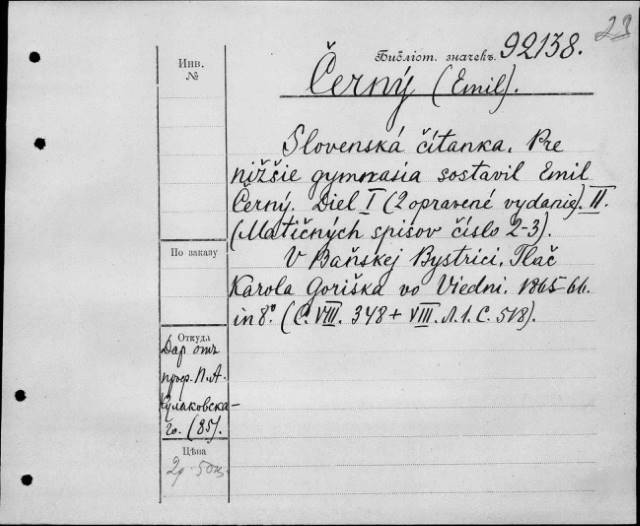 23
Библіот. значекъ. 92138.
Černý (Emil).
Инв.
№
Slovenská čítanka. Pre
nižšie gymnasia sostavil Emil
Černý. Diel I (2 opravené vydanie). II.
(Matičných spisov číslo 2-3).
V Baňskej Bystrici, Tlač
Karola Goriška vo Viedni. 1865-66.
in 8º. (C. VIII. 348 + VIII. Л.1. C. 518).
По заказу
Откуда
Даръ отъ
проф. П. А.
Кулаковска-
го. (85).
Цѣна
2р. 50к.